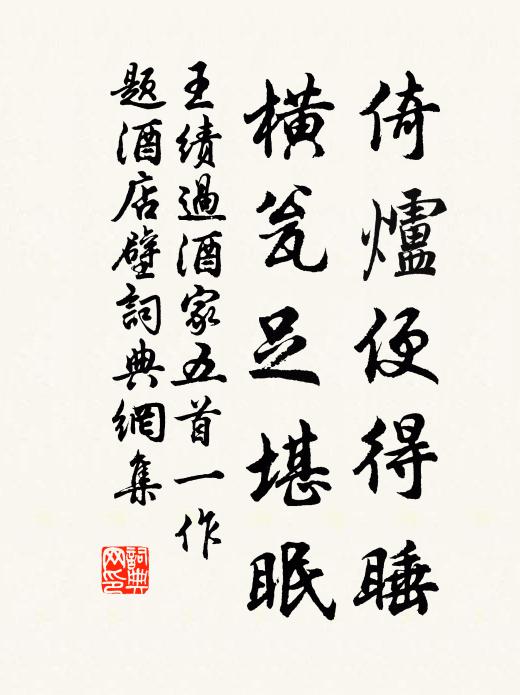 倚爐便得睡
橫瓮足堪眠
王績過酒家五首一作
題酒店壁詞典網集
詞典網印